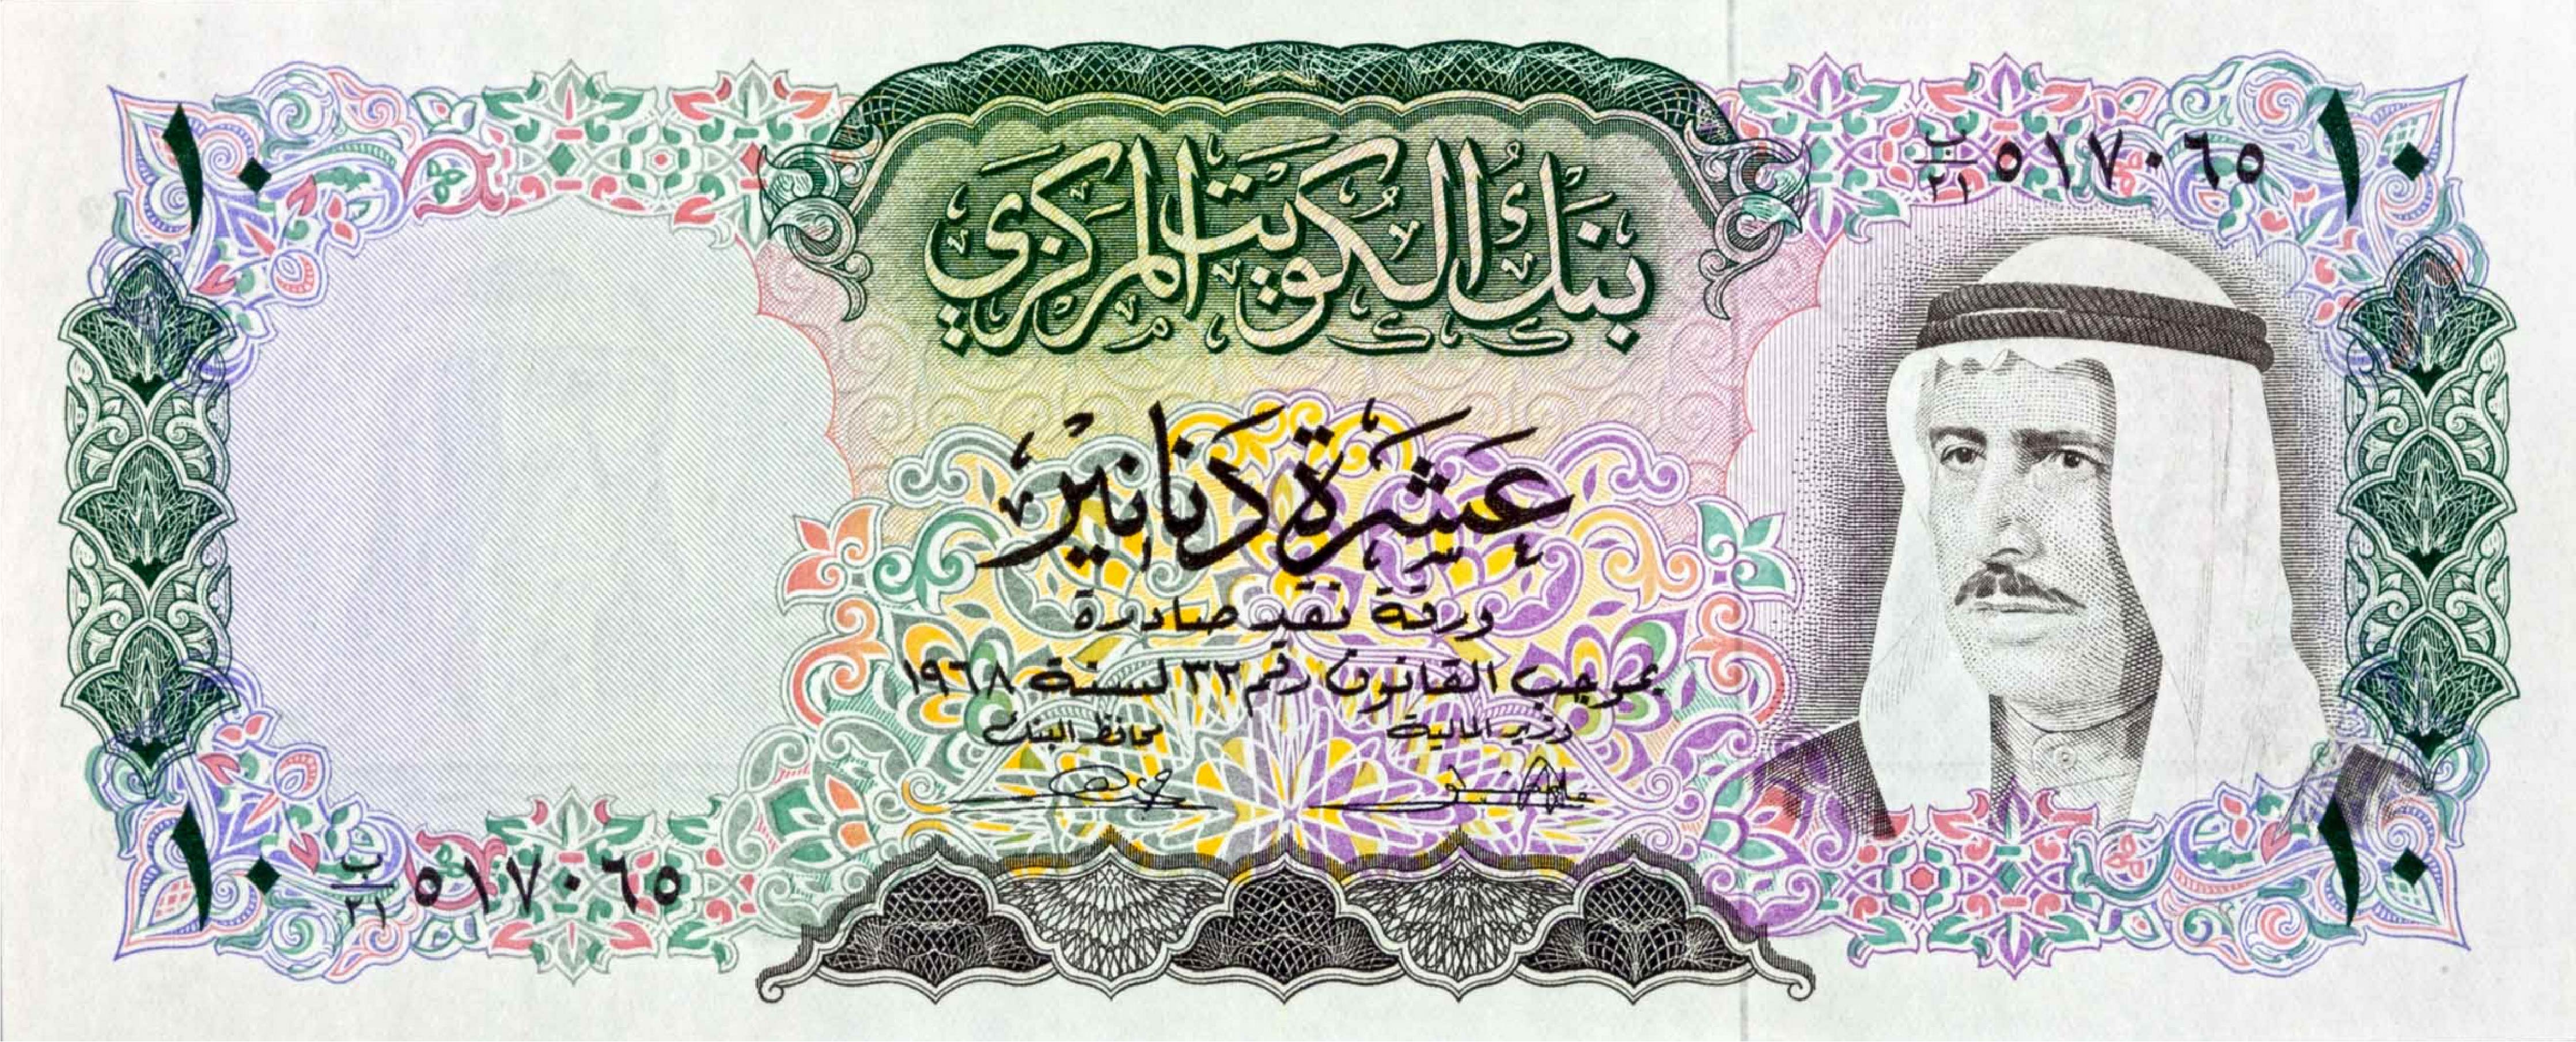 ١٠ ١٠
ب/٢١ ٥١٧٠٦٥
بَنْكُ الكُوَيْتِ المَركَزيّ
عَشَرَةُ دَنَانِيْر
ورقة نقد صادرة
بموجب القانون رقم ٣٢ لسنة ١٩٦٨
وزير المالية محافظ البنك
ب/٢١ ٥١٧٠٦٥
١٠ ١٠